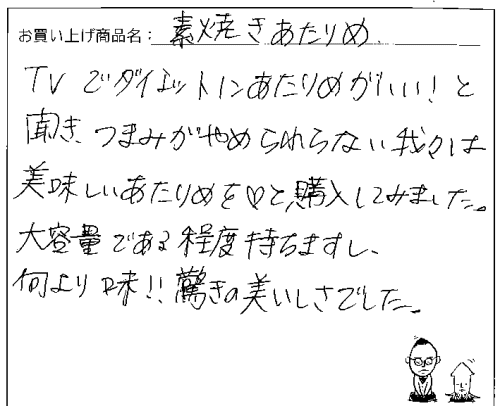 お買い上げ商品名： 素焼きあたりめ
TVでダイエットにあたりめがいい！と
聞き、つまみがやめられらない我々は
美味しいあたりめを♡と、購入してみました。
大容量である程度持ちますし、
何より味!!驚きの美いしさでした。